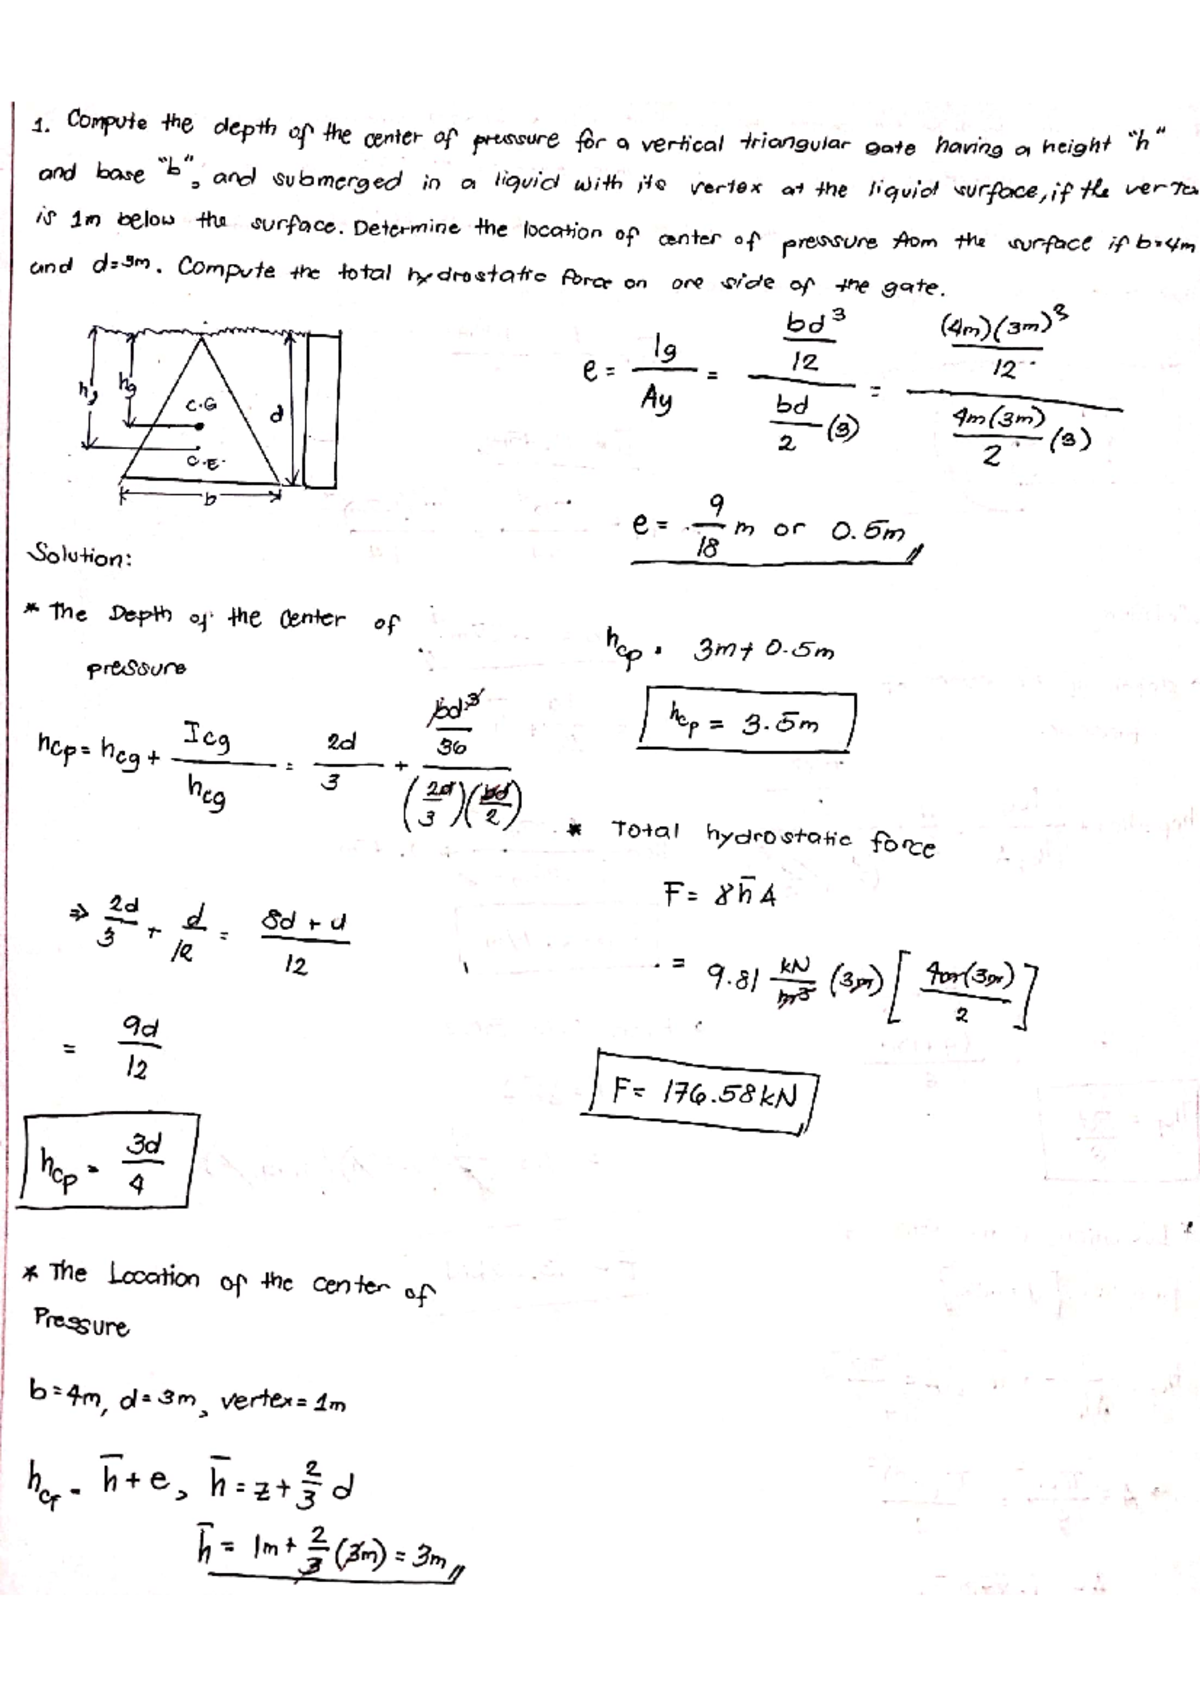 1. Compute the depth of the center of pressure for a vertical triangular gate having a height "h"
and base "b", and submerged in a liquid with its vertex at the liquid surface, if the vertex
is 1m below the surface. Determine the location of center of pressure from the surface if b=4m
and d=3m. Compute the total hydrostatic force on one side of the gate.
h, hg C.G d
C.E.
b
Solution:
* The Depth of the Center of
pressure
hcp = hcg + Icg / hcg = 2d/3 + (bd³/36) / (2d/3)(bd/2)
⇒ 2d/3 + d/12 = (8d + d)/12
= 9d/12
hcp = 3d/4
* The Location of the center of
Pressure
b=4m, d=3m, vertex=1m
hcp = h̄ + e, h̄ = z + 2/3 d
h̄ = 1m + 2/3 (3m) = 3m
e = Ig / Ay = (bd³/12) / (bd/2 (3)) = ((4m)(3m)³/12) / (4m(3m)/2 (3))
e = 9/18 m or 0.5m
hcp = 3m + 0.5m
hcp = 3.5m
* Total hydrostatic force
F = γh̄A
= 9.81 kN/m³ (3m) [4m(3m)/2]
F = 176.58kN